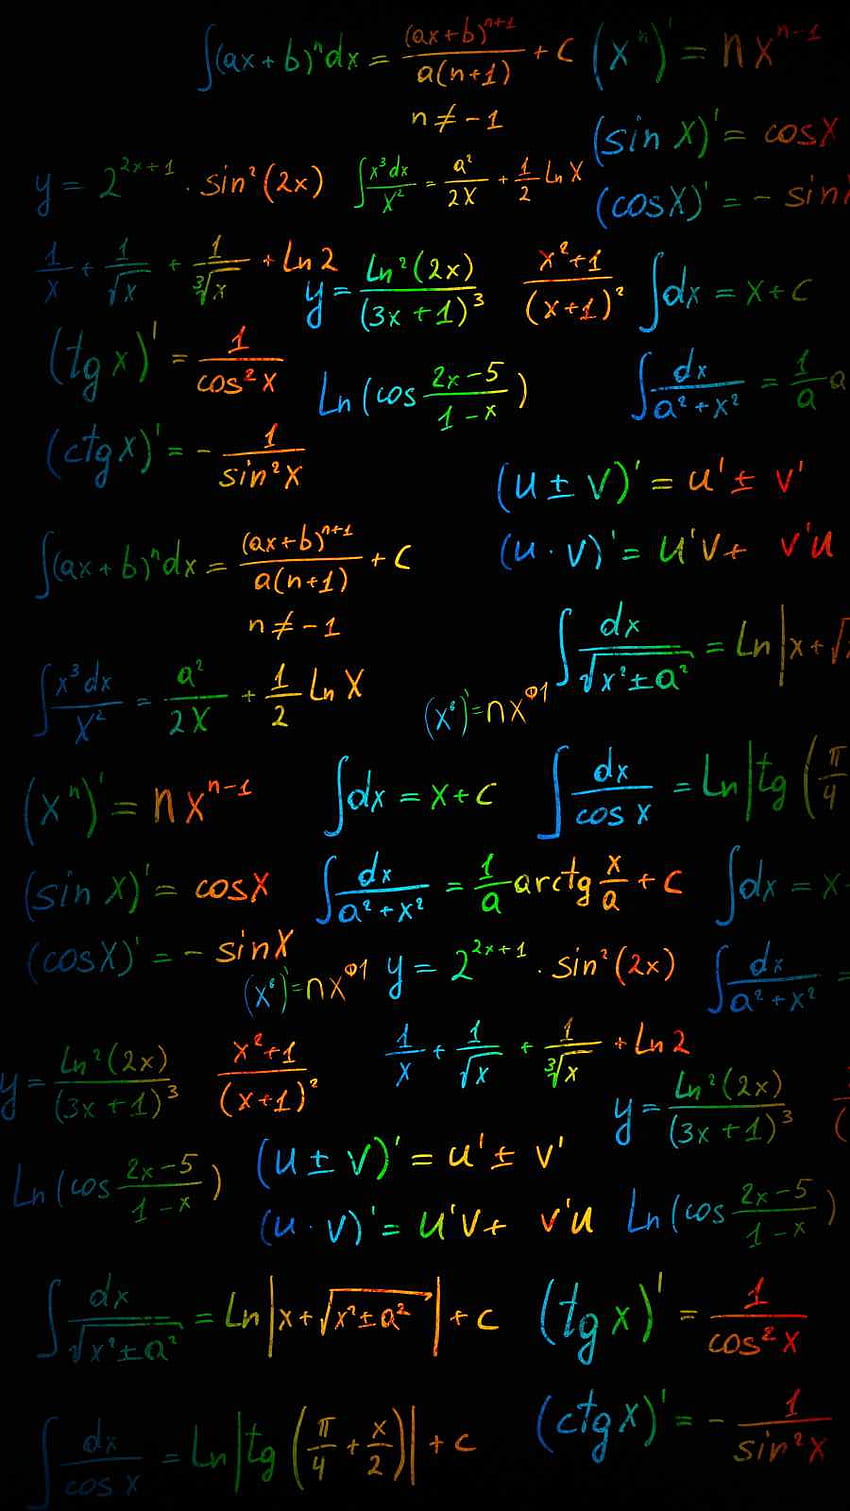 ∫(ax+b)ⁿdx = (ax+b)ⁿ⁺¹/a(n+1) + C
n ≠ -1
(xⁿ)' = nxⁿ⁻¹
(sin x)' = cosx
(cosX)' = - sin
y = 2²ˣ⁺¹ · sin²(2x)
∫x³dx/x² = a²/2X + 1/2 Ln X
1/x + 1/√x + 1/∛x + Ln2
y = Ln²(2x)/(3x+1)³
x²+1/(x+1)²
∫dx = x+c
(tg x)' = 1/cos²x
Ln(cos 2x-5/1-x)
∫dx/a²+x² = 1/a a
(ctgx)' = - 1/sin²x
(u ± v)' = u' ± v'
(u · v)' = u'v + v'u
∫(ax+b)ⁿdx = (ax+b)ⁿ⁺¹/a(n+1) + C
n ≠ -1
∫dx/√x²±a² = Ln|x+√
∫x³dx/x² = a²/2X + 1/2 Ln X
(xⁿ)' = nxⁿ⁻¹
∫dx = x+c
∫dx/cos x = Ln|tg(π/4
(sin x)' = cosx
∫dx/a²+x² = 1/a arctg x/a + c
∫dx = x
(cosX)' = - sinX
y = 2²ˣ⁺¹ · sin²(2x)
∫dx/a²+x² =
y = Ln²(2x)/(3x+1)³
x²+1/(x+1)²
1/x + 1/√x + 1/∛x + Ln2
y = Ln²(2x)/(3x+1)³
Ln(cos 2x-5/1-x)
(u ± v)' = u' ± v'
(u · v)' = u'v + v'u
Ln(cos 2x-5/1-x)
∫dx/√x²±a² = Ln|x+√x²±a²| + c
(tg x)' = 1/cos²x
∫dx/cos x = Ln|tg(π/4 + x/2)| + c
(ctgx)' = - 1/sin²x